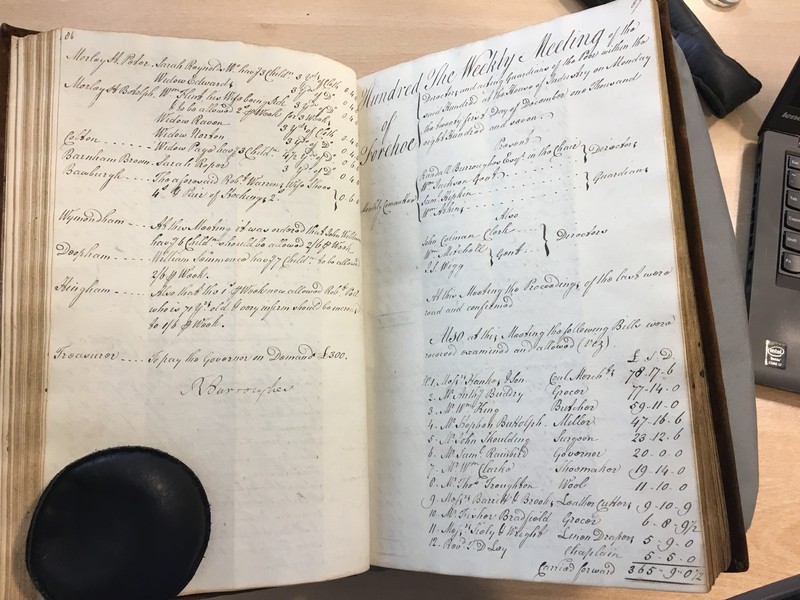 86
Morley St. Peter Sarah Raynolds havg. 3 Childn. 3 Yds. of Cloth 0.4.
Widow Edwards 3 Yds. of Do. 0.4.
Morley St. Botolph Wm. Flint his Wife being Sick
to be allowed 2s. ⅌ Week for 3 Weeks
Widow Raven 3 Yds. of Cloth 0.4.
Widow Norton 3 Yds. of Do. 0.4.
Coston Widow Page havg. 3 Childn. 4½ Yds. of Do. 0.
Barnham Broom Sarah Roper 3 Yds. of Do. 0.4.
Bawburgh The aforesaid Robt. Warren's Wife Shoes
4s. & Pair of Stockings 2. 0.6.
Wymondham At this Meeting it was ordered that John
havg. 6 Childn. should be allowed 2/6 ⅌ Week
Deopham William havg. 7 Childn. to be allowed
2/6 ⅌ Week.
Hingham Also that the 1s. ⅌ Week now allowed Robt.
who is 71 Yrs. old & very infirm should be
to 1/6 ⅌ Week.
Treasurer To pay the Governor on Demand £300.
R Burroughes
87
Hundred of Forehoe
The Weekly Meeting of the
Directors and acting Guardians of the Poor within the
said Hundred at the House of Industry on Monday
the twenty first Day of December one Thousand
eight Hundred and seven.
Present
Randall Burroughes Esqr. in the Chair
Wm. Jackson Gent. Directors
Weekly Committee
Saml.
Wm. Guardians
Also
John Colman Clerk
Wm. Mitchell Gent. Directors
J. Wegg
At this Meeting the Proceedings of the last were
read and confirmed
Also at this Meeting the following Bills were
received examined and allowed (Vizt.)
£ S D.
No. 1. Messrs. Hanks & Son Coal Merchts. 78-17-6
2. Mr. Anthy. Buidry Grocer 77-14-0
3. Mr. Wm. King Butcher 59-11-0
4. Mr. Stephen Buttolph Miller 47-16-6
5. Mr. John Shoulding Surgeon 23-12-6
6. Mr. Saml. Rainbird Governor 20-0-0
7. Mr. Wm. Clarke Shoemaker 19-14-0
8. Mr. Thos. Troughton Wool 11-10-0
9. Messrs. Barritt & Brooks Leather Cutters 9-10-9
10. Mr. Fisher Bradfield Grocer 6-8-9½
11. Messrs. & Wright Linen Drapers 5-9-0
12. Revd. T. D Lay Chaplain 5-5-0
Carried forward 365-9-0½
lenovo
intel